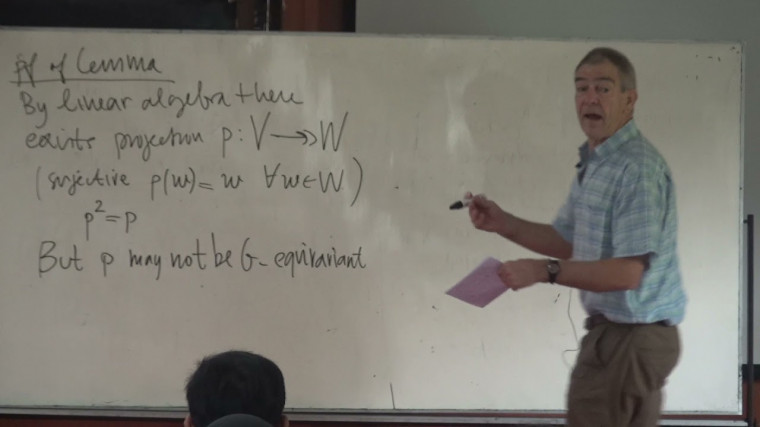 Pf of Lemma
By linear algebra there
exists projection p: V ↠ W
(surjective p(w) = w ∀w∈W)
p² = p
But p may not be G-equivariant